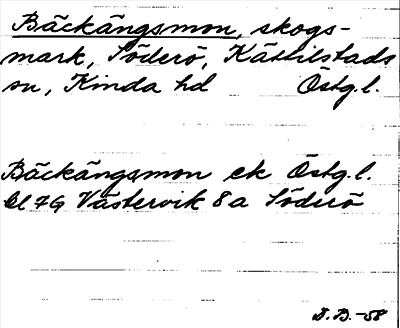 Bäckängsmon, skogs-
mark, Söderö, Kättilstads
sn, Kinda hd Östg.l.
Bäckängsmon ek Östg.l.
Bl 7G Västervik 8a Söderö
D.B.-58